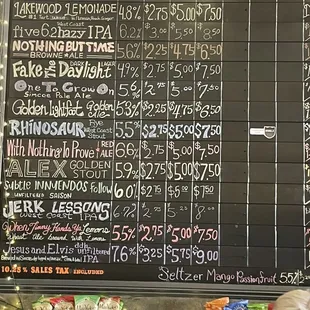 LAKEWOOD LEMONADE 4.8% $2.75 $5.00 $7.50
West Coast
five 62 hazy IPA 6.2% $3.00 $5.50 $8.50
NOTHING BUT TIME 5.6% $2.25 $4.75 $7.50
BROWN ALE
DARK LAGER
Fake The Daylight 4.9% $2.75 $5.00 $7.50
One To Grow On
Simcoe Pale Ale
Golden Lightfoot Golden ale 5.3% $2.25 $4.75 $6.50
RHINOSAUR Rye West Coast Stout 5.5% $2.75 $5.00 $7.50
With Nothing To Prove RED ALE 6.6% $2.75 $5.00 $7.50
ALEX GOLDEN STOUT 5.9% $2.75 $5.00 $7.50
Subtle INNUENDOS Follow 6.0% $2.75
SAISON
JERK LESSONS 6.7%
WEST COAST IPA
When Jimmy Hands Ya Lemons 5.5% $2.75 $5.00 $7.50
Wheat Ale Brewed with Lemons
Jesus and Elvis ddh unfiltered IPA 7.6% $3.25 $5.75 $9.00
10.25% SALES TAX INCLUDED
Seltzer Mango Passionfruit 5.5%